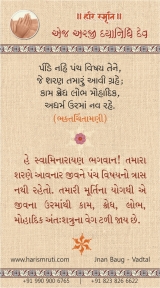 ॥ હરિ સ્મૃતિ ॥
એજ અરજી દયાનિધિ દેવ
પીંડે નહિં પંચ વિષય તેને,
જે શરણ તમારું આવી ગ્રહે;
કામ ક્રોધ લોભ મોહાદિક,
અધર્મ ઉરમાં નવ રહે.
(ભક્તચિંતામણી)
હે સ્વામિનારાયણ ભગવાન! તમારા
શરણે આવનાર જીવને પંચ વિષયનો ત્રાસ
નથી રહેતો. તમારી મૂર્તિના યોગથી એ
જીવના ઉરમાંથી કામ, ક્રોધ, લોભ,
મોહાદિક અંતઃશત્રુના વેગ ટળી જાય છે.
www.harismruti.com
Jnan Baug – Vadtal
+91 990 900 6765 | +91 823 826 6622